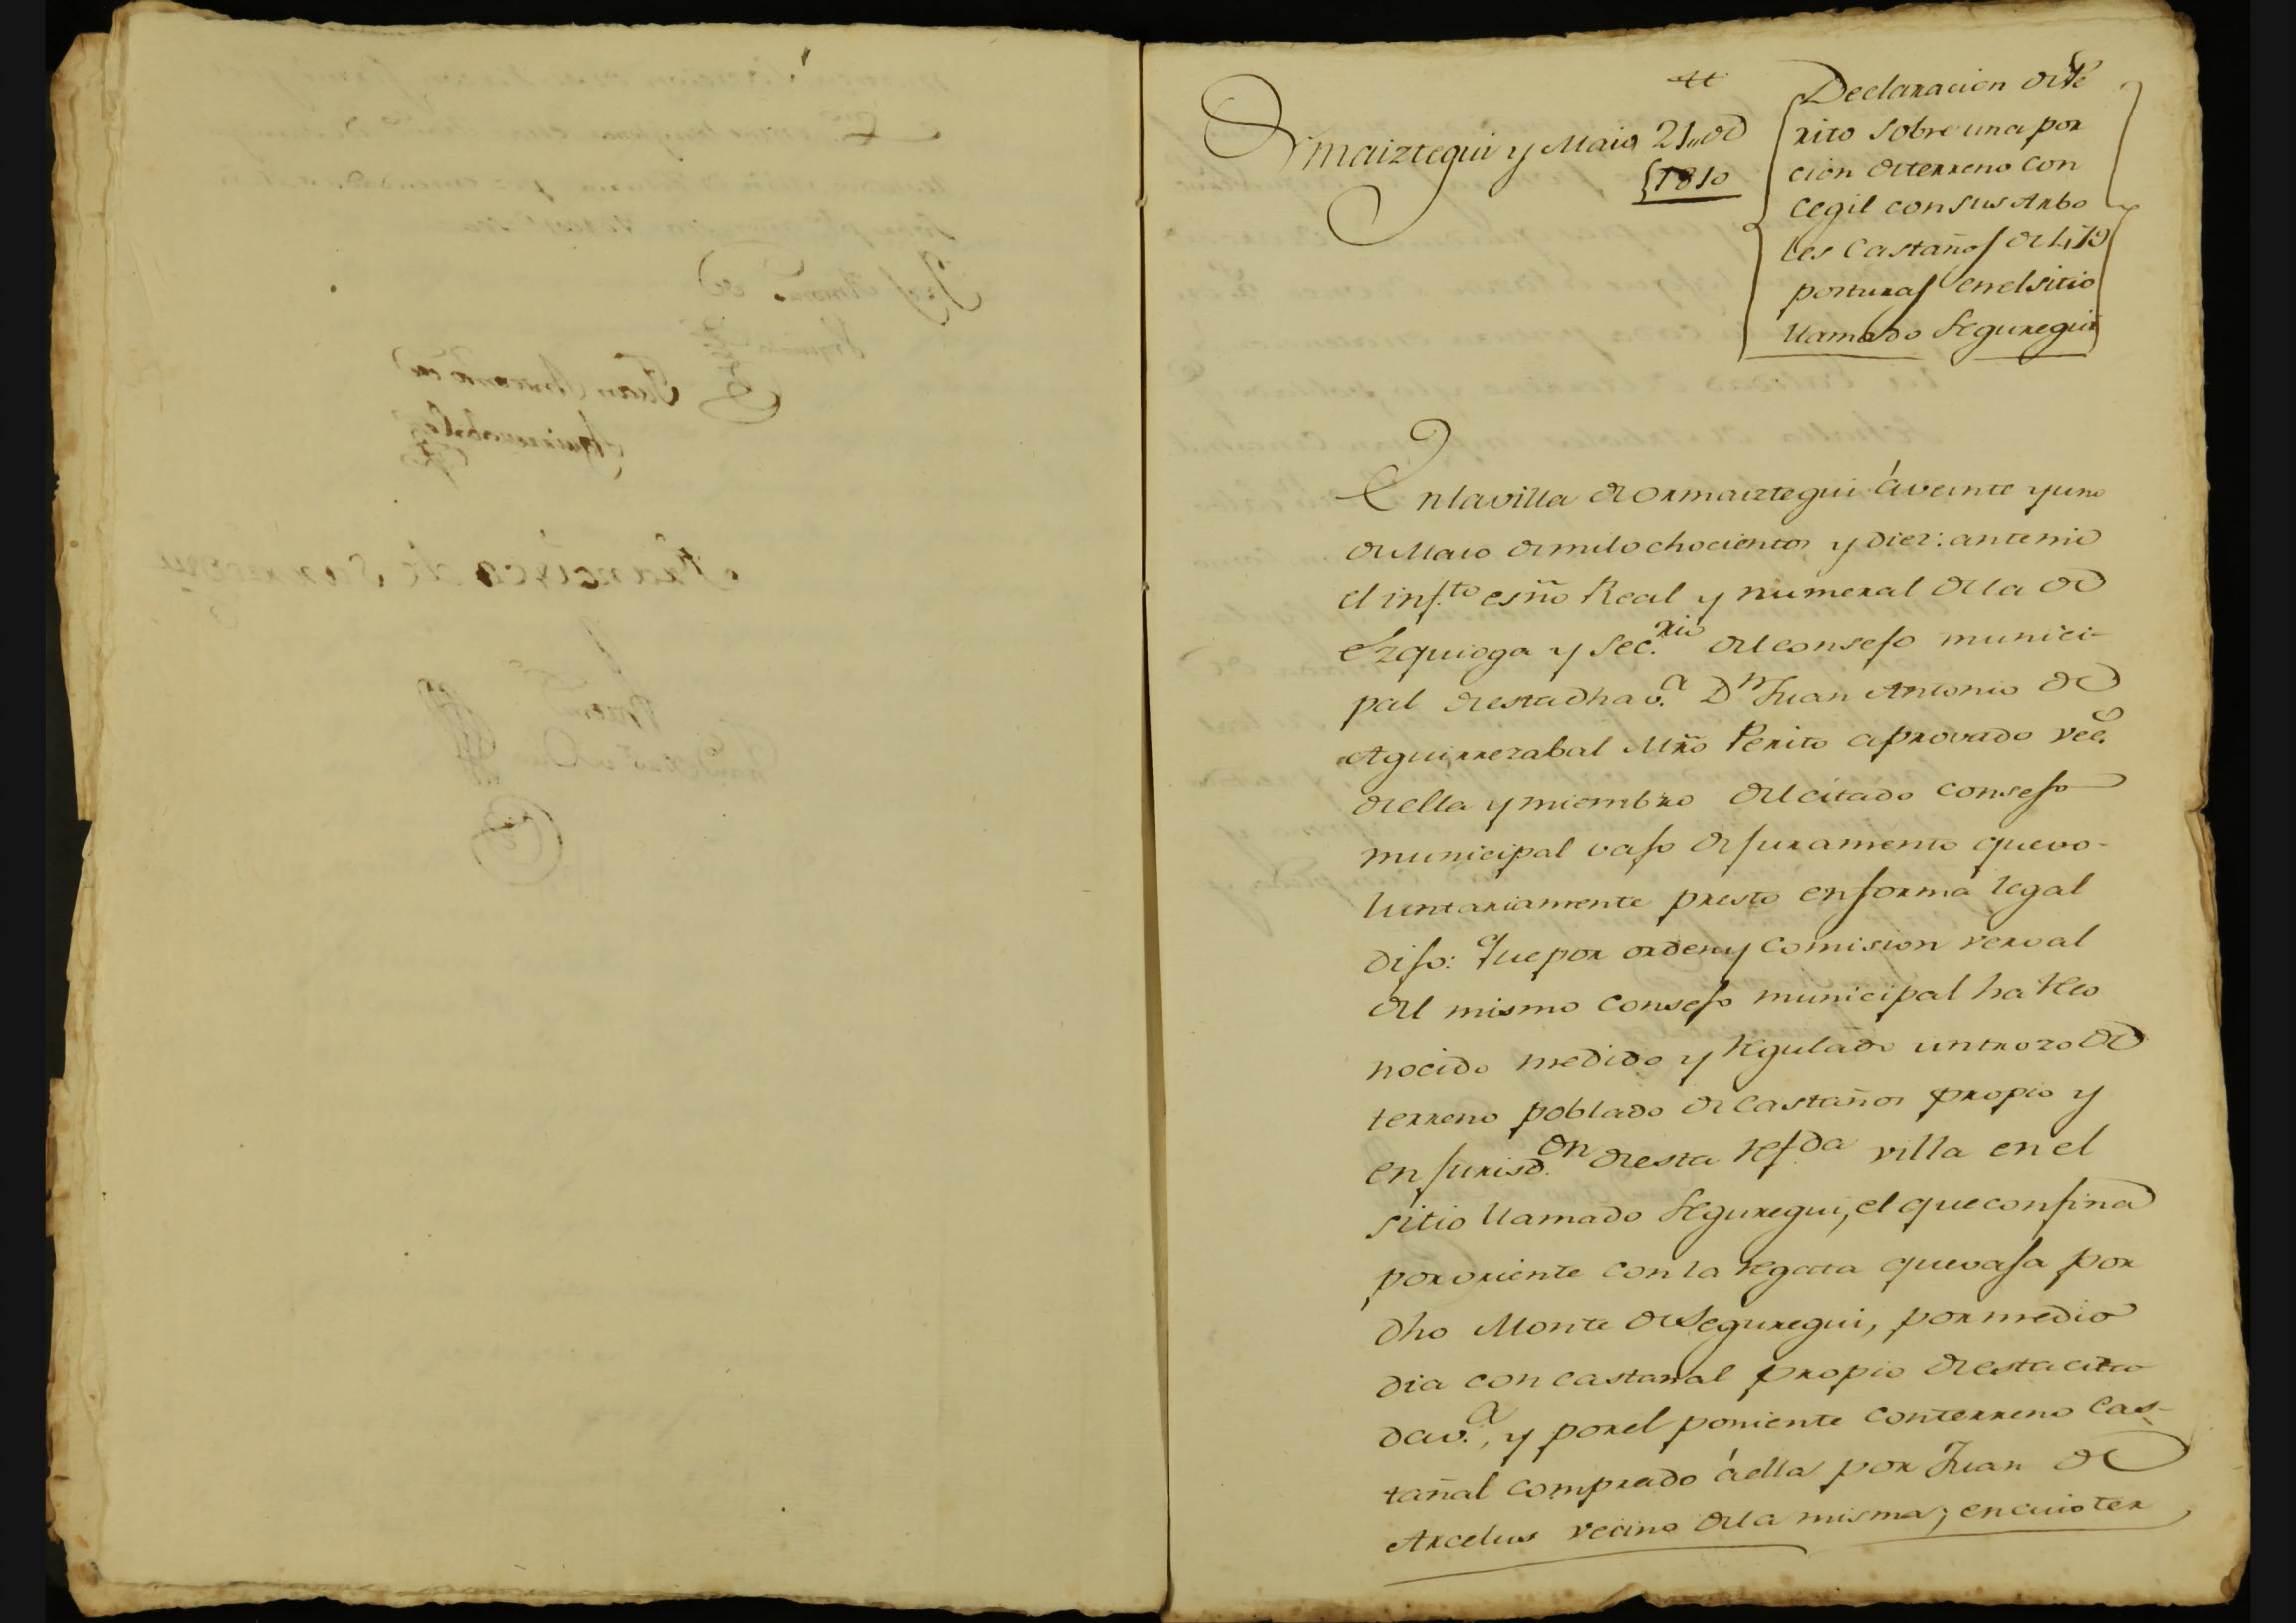 Ormaiztegui y Maio 21,, de
1810
Declaracion de Pe
rito sobre una por
cion de terreno con
cegil con sus Arbo
les Castaños de
posturas en el sitio
llamado Seguregui
En la villa de ormaiztegui á veinte y uno
de Maio de mil ochocientos y diez: ante mi
el inf.to esño Real y numeral de la de
Ezquioga y Sec.rio del consejo munici-
pal de esta dha v.a Dn Juan Antonio de
Aguirrezabal Mño Perito aprovado vec.o
de ella y miembro del citado consejo
municipal vajo de juramento que vo-
luntariamente presto en forma legal
dijo: Que por orden y comision verval
del mismo consejo municipal ha reco
nocido medido y regulado un trozo de
terreno poblado de castaños propio y
en jurisd.on de esta ref.da villa en el
sitio llamado Seguregui, el que confina
por oriente con la regata que vaja por
dho Monte de Seguregui, por medio
dia con castañal propio de esta cita
da v.a, y por el poniente con terreno Cas-
tañal comprado á ella por Juan de
Arcelus vecino de la misma; en cuio ter